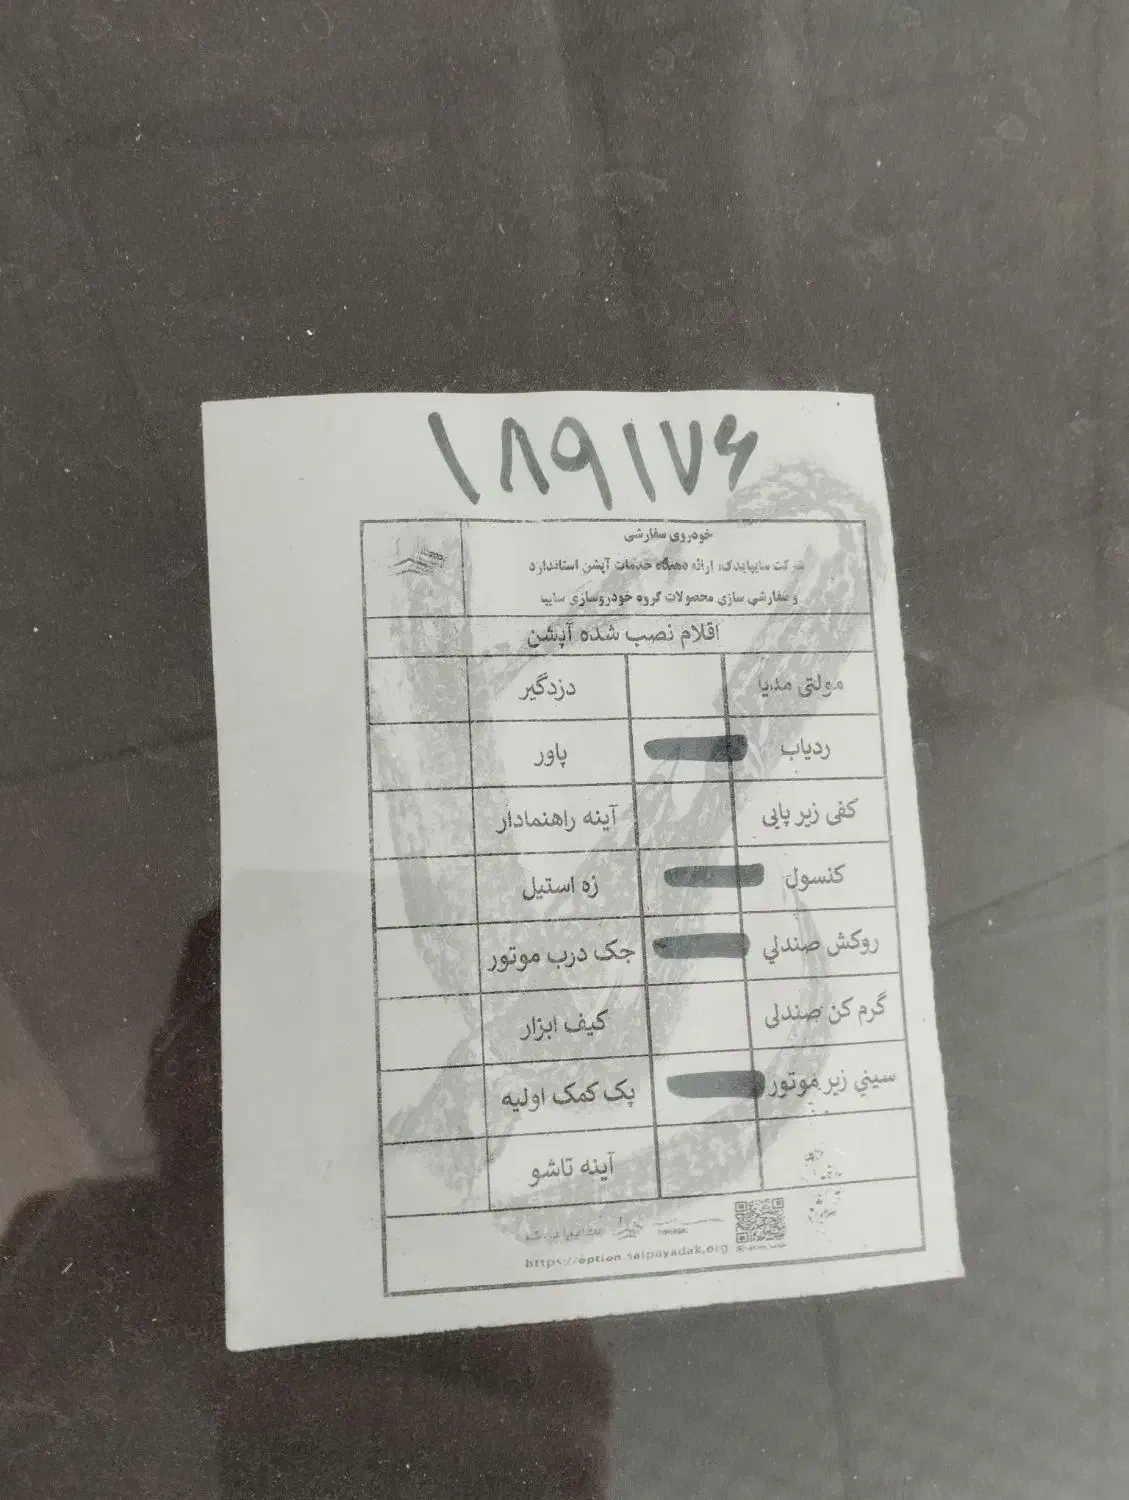 ۱۸۹۱۷۶
خودروی سفارشی
شرکت سایپایدک، ارائه دهنگاه خدمات آپشن استاندارد
و سفارشی سازی محصولات گروه خودروسازی سایپا
اقلام نصب شده آپشن
مولتی مدیا دزدگیر
ردیاب پاور
کفی زیر پایی آینه راهنمادار
کنسول زه استیل
روکش صندلي جک درب موتور
گرم کن صندلی کیف ابزار
سيني زیر موتور پک کمک اولیه
آینه تاشو
https://option.saipayadak.org